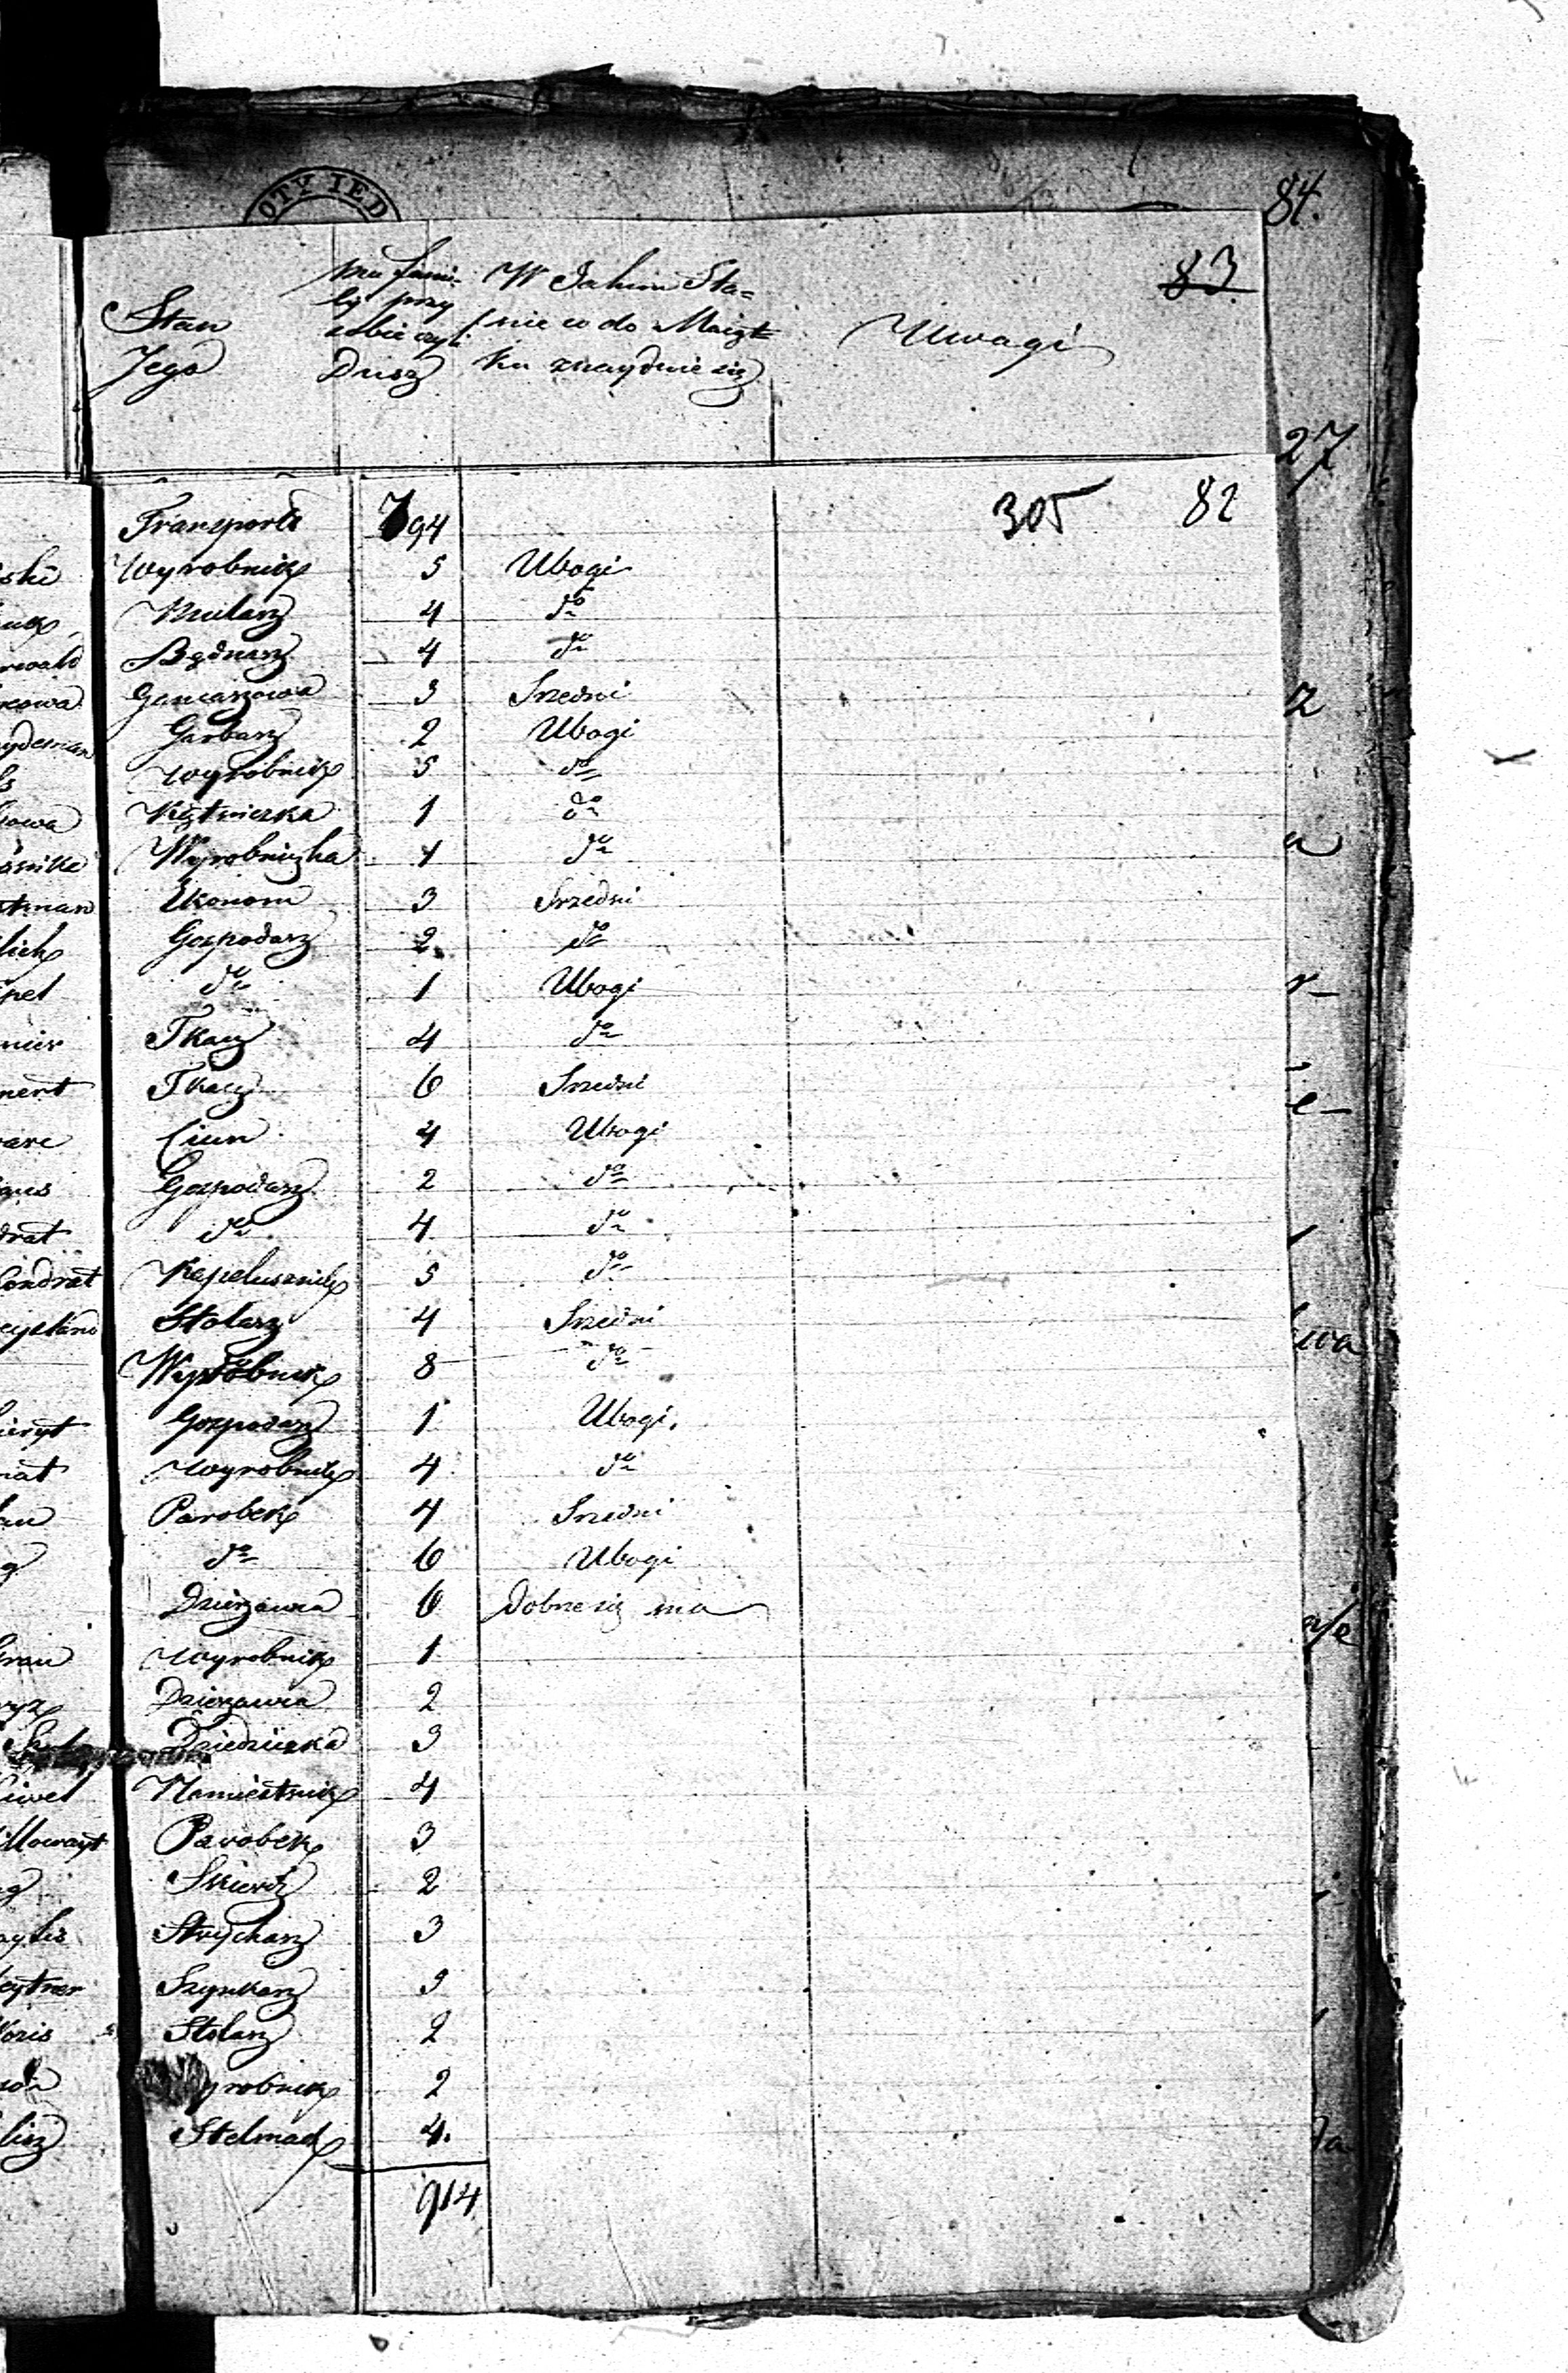 OTY IED
84.
83
Stan Jego
ma fami-
lij przy
sobie czyli
Dusz
W Jakim Sta=
nie co do Maiąt=
ku znayduie się
Uwagi
27
Transport 794
305 82
ski Wyrobnik 5 Ubogi
Mularz 4 do
rwald Bednarz 4 do
kowa Garncarzowa 3 Srzedni
ydeman Garbarz 2 Ubogi
Wyrobnik 5 do
owa Kątniczka 1 do
Wyrobniczka 1 do
tman Ekonom 3 Srzedni
lich Gospodarz 2 do
pel do 1 Ubogi
nier Tkacz 4 do
nert Tkacz 6 Srzedni
Ciun 4 Ubogi
aus Gospodarz 2 do
drat do 4 do
Condrat Kapelusznik 5 do
Stolarz 4 Srzedni
Wyrobnik 8 do
Gospodarz 1 Ubogi
Wyrobnik 4 do
Parobek 4 Srzedni
g do 6 Ubogi
Dzierzawca 6 dobrze się ma
Grau Wyrobnik 1
Dzierzawca 2
Dziedziczka 3
iwel Namiestnik 4
Parobek 3
g 2
Strycharz 3
eytner Szynkarz 3
Stolarz 2
yrobnik 2
lisz Stelmach 4.
914